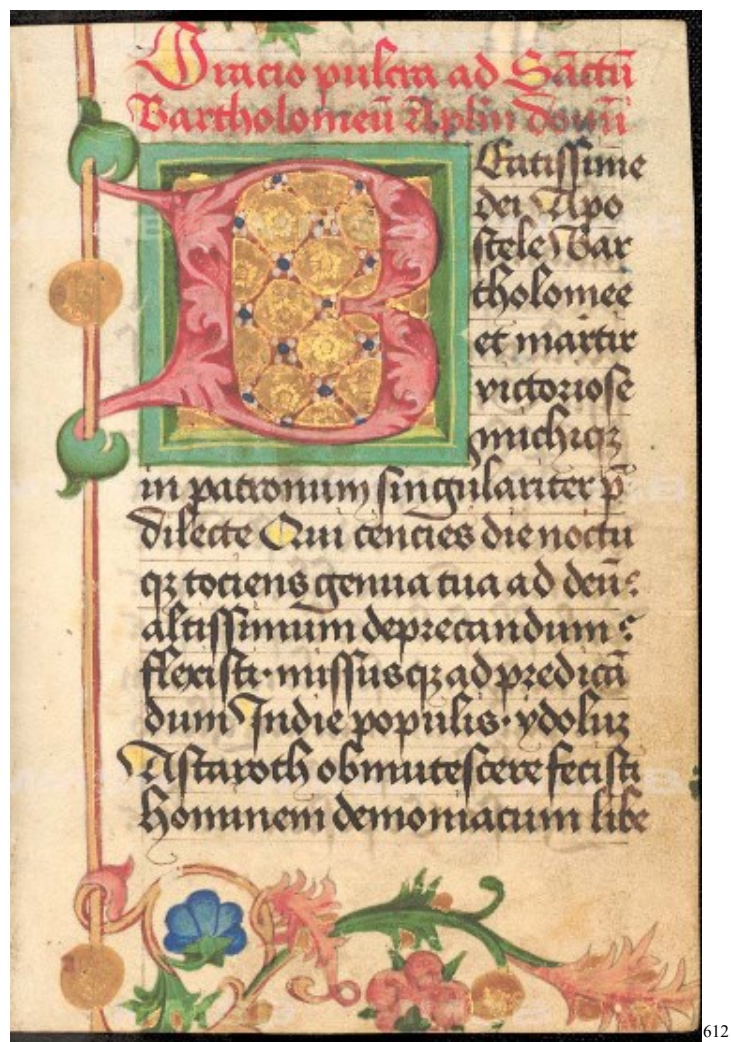 Oracio pulcra ad Sāctū
Bartholomeū Aplm̄ domī
Beatissime
dei Apo
stele Bar
tholomee
et martir
victoriose
michiqꝫ
in patronum singulariter p̄
dilecte Qui cencies die noctu
qꝫ tociens genua tua ad deū:
altissimum deprecandum :
flexisti · missusqꝫ ad predicā
dum Indie populis · ydoluꝫ
Astaroth obmutescere fecisti
Hominem demoniacum libe
612